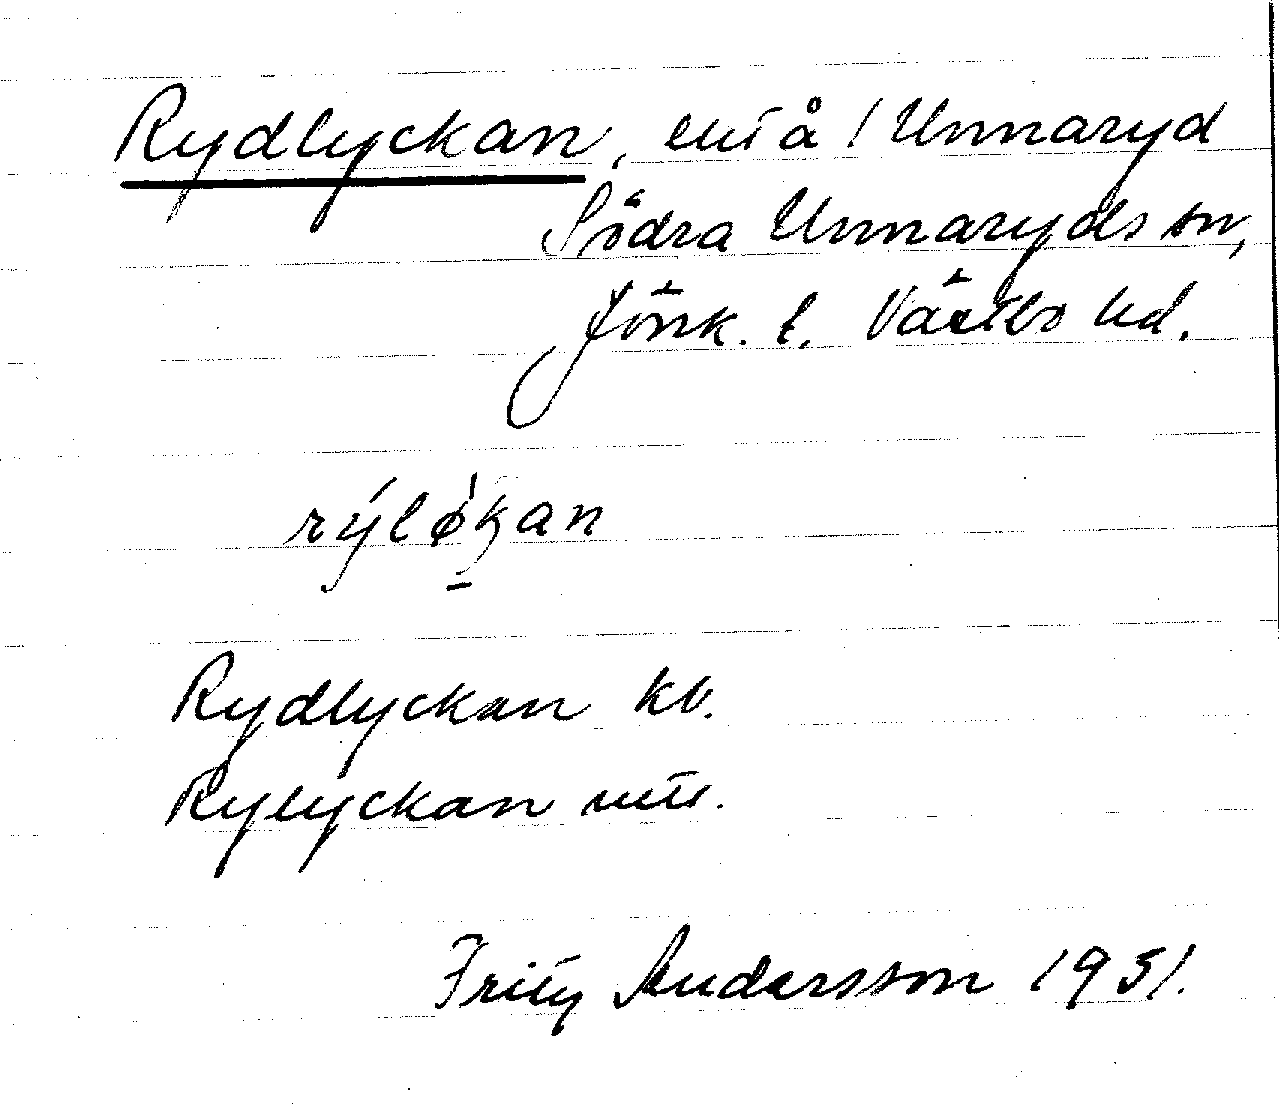 Rydlyckan, utå / Unnaryd
Södra Unnaryds sn,
Jönk. l. Västbo hd.
rýløkan
Rydlyckan kb.
Rylyckan utt.
Fritz Andersson 1931.